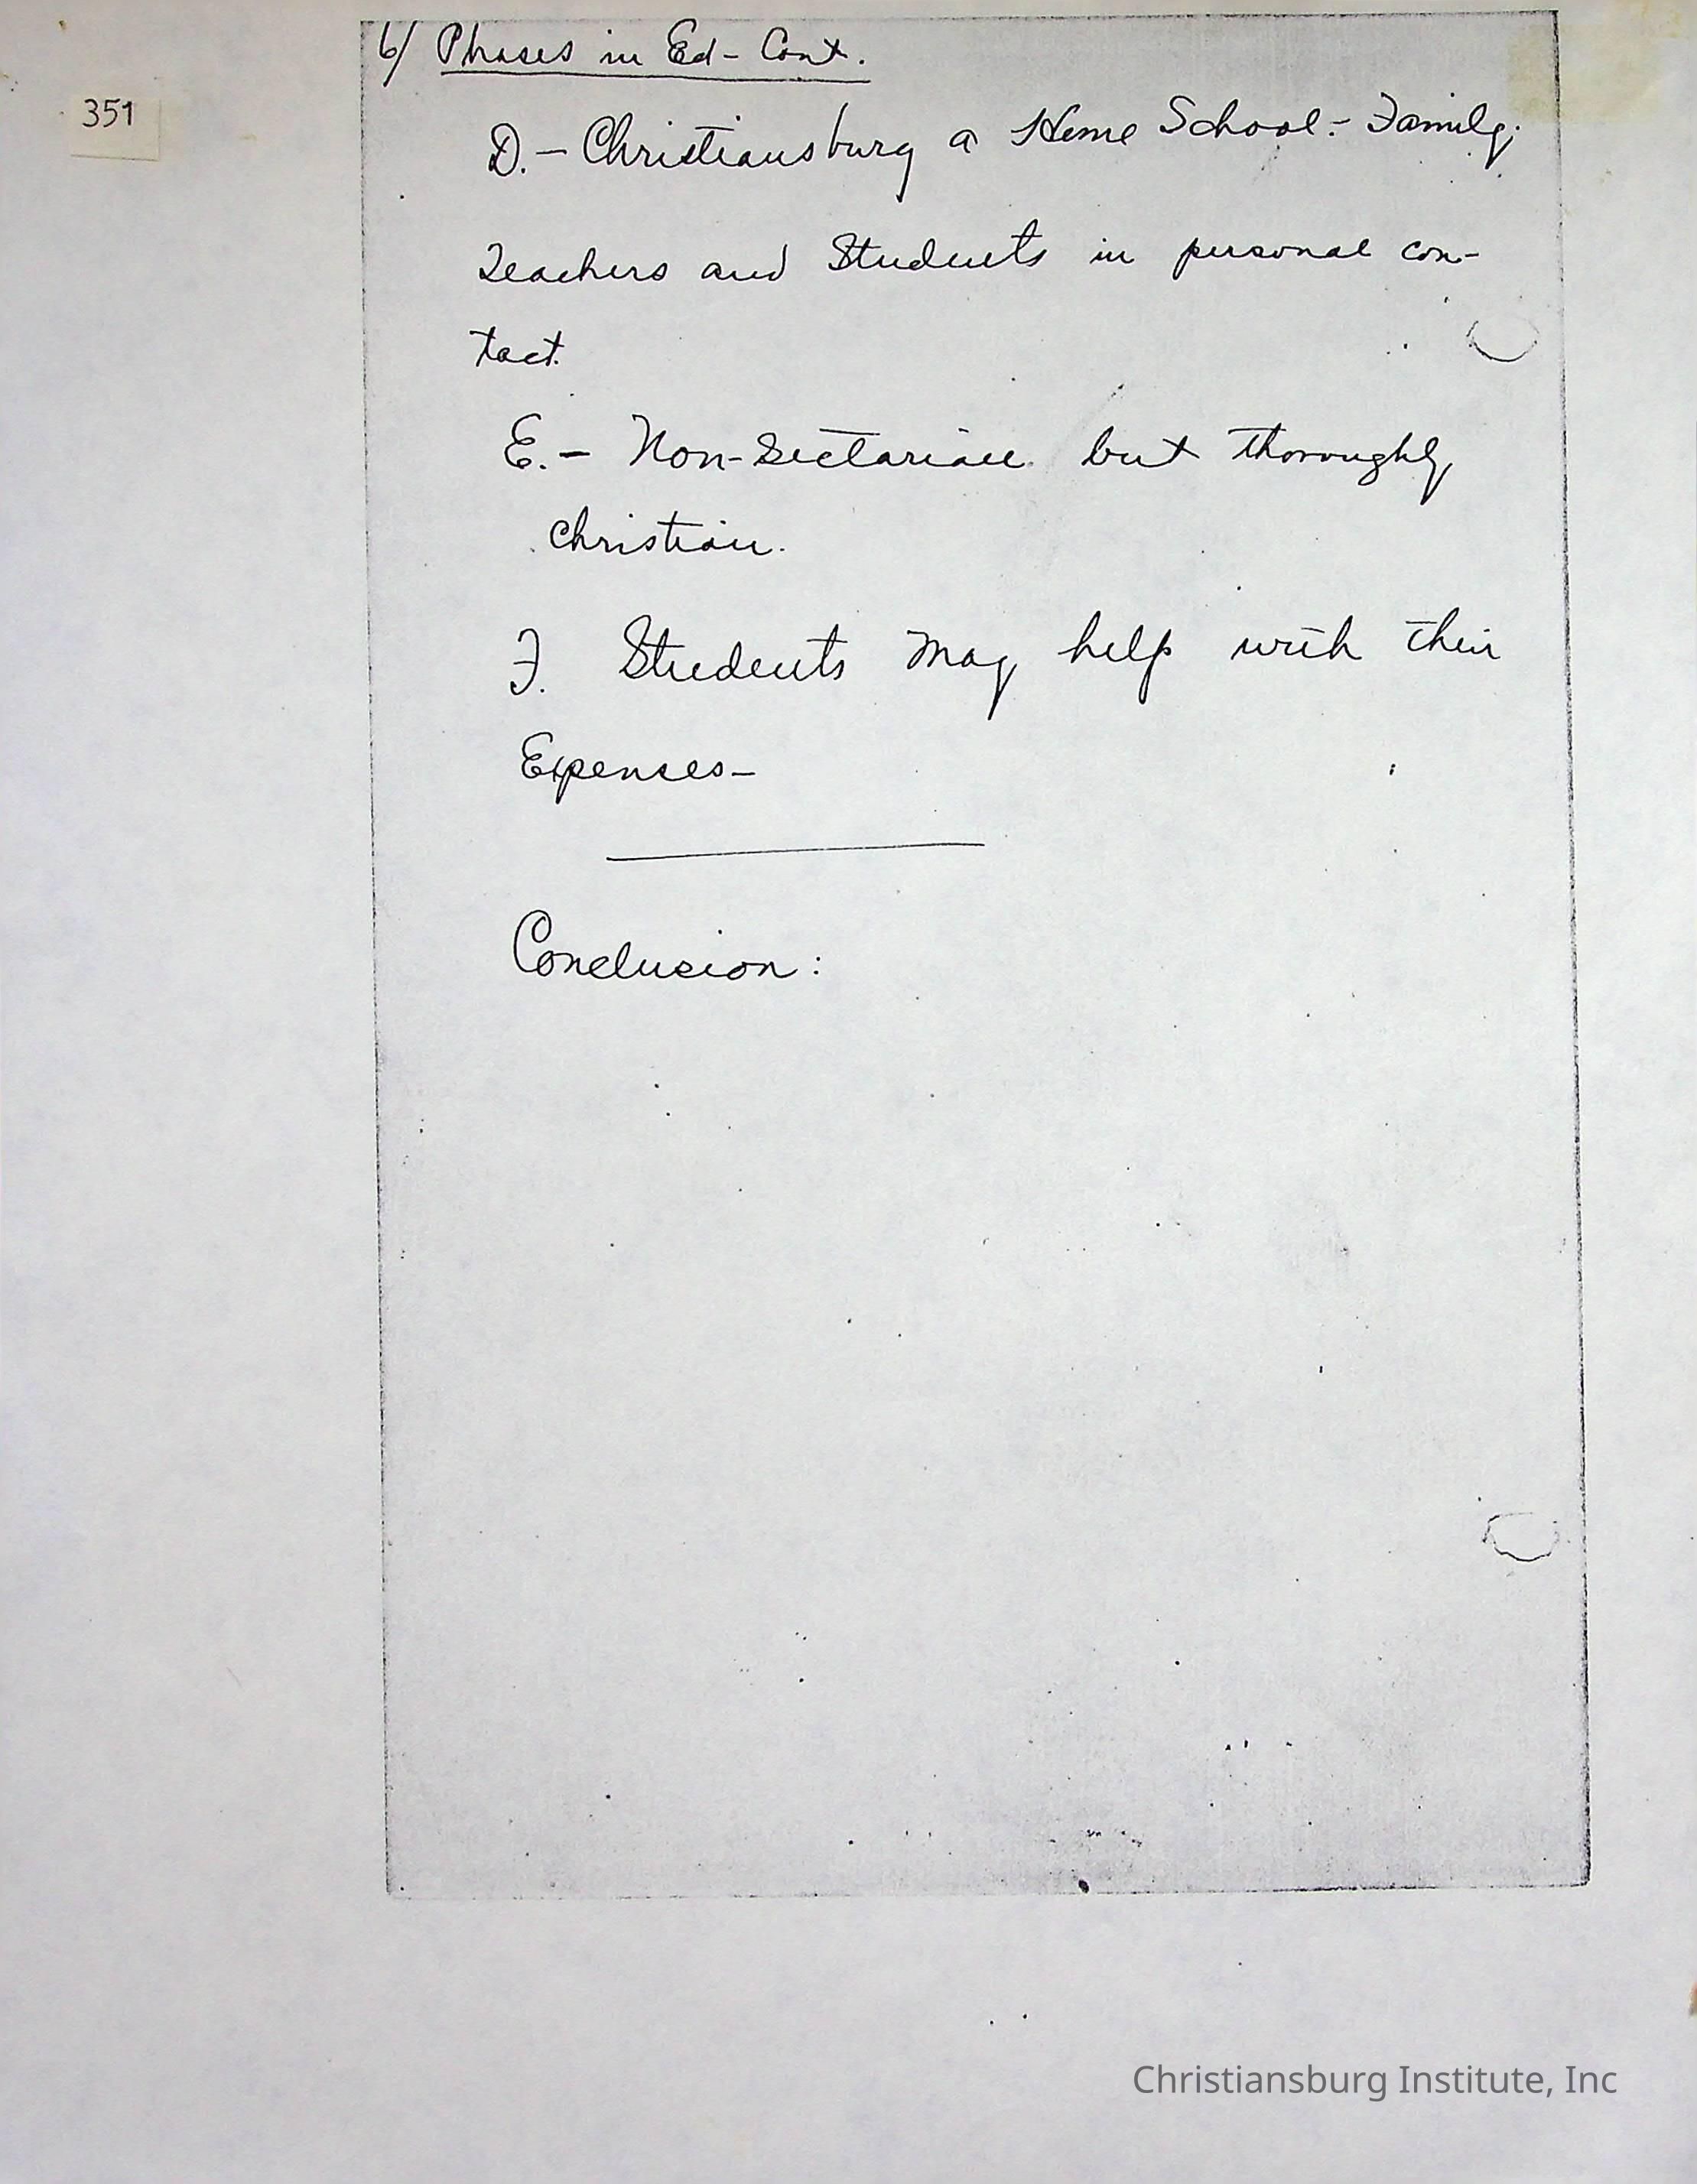 6/ Phases in Ed - Cont.
351
D. - Christiansburg a Home School - Family.
Teachers and Students in personal con-
tact.
E. - Non-Sectarian but thoroughly
Christian.
F. Students may help with their
Expenses -
Conclusion:
Christiansburg Institute, Inc